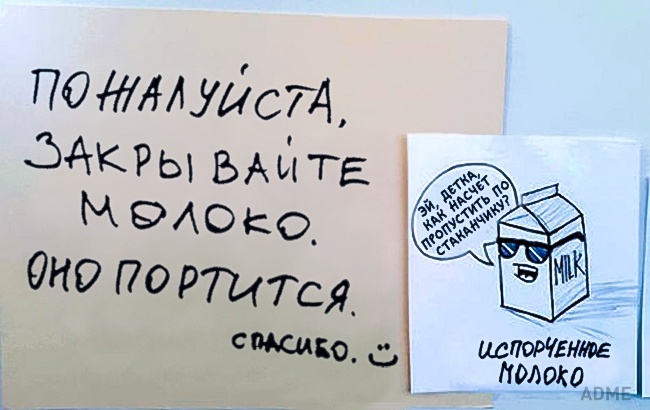 ПОЖАЛУЙСТА,
ЗАКРЫВАЙТЕ
МОЛОКО.
ОНО ПОРТИТСЯ.
СПАСИБО.
ЭЙ, ДЕТКА,
КАК НАСЧЕТ
ПРОПУСТИТЬ ПО
СТАКАНЧИКУ?
MILK
ИСПОРЧЕННОЕ
МОЛОКО
ADME